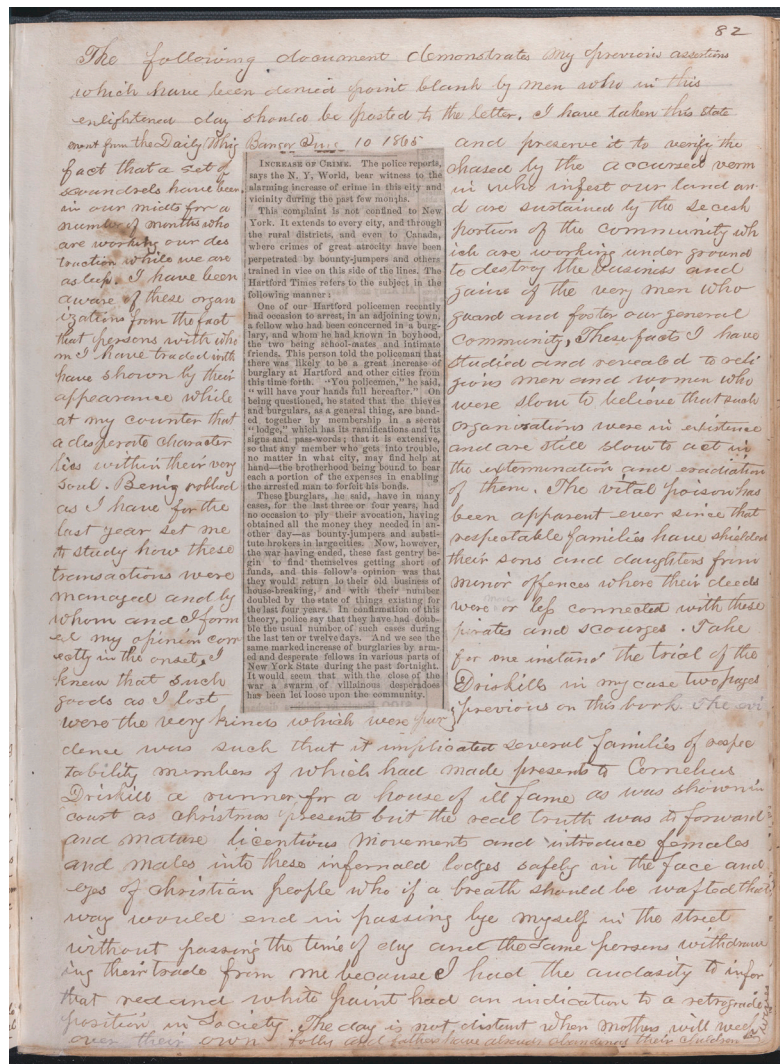 82
The following document demonstrates my previous assertions
which have been denied point blank by men who in this
enlightened day should be posted to the letter. I have taken this state
ment from the Daily Whig Bangor June 10 1865
fact that a set of
scoundrels have been
in our midts for a
number of months who
are working our des
truction while we are
asleep. I have been
aware of these organ
izations from the fact
that persons with who
m I have traded with
have shown by their
appearance while
at my counter that
a desperate character
lies within their very
soul. Being robbed
as I have for the
last year set me
to study how these
transactions were
managed and by
whom and I form
ed my opinion corr
ectly in the onset, I
knew that such
goods as I lost
were the very kinds which were pur
INCREASE OF CRIME. The police reports,
says the N. Y. World, bear witness to the
alarming increase of crime in this city and
vicinity during the past few months.
This complaint is not confined to New
York. It extends to every city, and through
the rural districts, and even to Canada,
where crimes of great atrocity have been
perpetrated by bounty-jumpers and others
trained in vice on this side of the lines. The
Hartford Times refers to the subject in the
following manner:
One of our Hartford policemen recently
had occasion to arrest, in an adjoining town,
a fellow who had been concerned in a burg-
lary, and whom he had known in boyhood,
the two being school-mates and intimate
friends. This person told the policeman that
there was likely to be a great increase of
burglary at Hartford and other cities from
this time forth. "You policemen," he said,
"will have your hands full hereafter." On
being questioned, he stated that the thieves
and burgulars, as a general thing, are band-
ed together by membership in a secret
"lodge," which has its ramifications and its
signs and pass-words; that it is extensive,
so that any member who gets into trouble,
no matter in what city, may find help at
hand—the brotherhood being bound to bear
each a portion of the expense in enabling
the arrested man to forfeit his bonds.
These burglars, he said, have in many
cases, for the last three or four years, had
no occasion to ply their avocation, having
obtained all the money they needed in an-
other day—as bounty-jumpers and substi-
tute brokers in large cities. Now, however,
the war having ended, these fast gentry be-
gin to find themselves getting short of
funds, and this fellow's opinion was that
they would return to their old business of
house-breaking, and with their number
doubled by the state of things existing for
the last four years. In confirmation of this
theory, police say they have had dou-
ble the usual number of such cases during
the last ten or twelve days. And we see the
same marked increase of burglaries by arm-
ed and desperate fellows in various parts of
New York State during the past fortnight.
It would seem that with the close of the
war a swarm of villainous desperadoes
has been let loose upon the community.
and preserve it to verify the
chased by the accursed verm
in who infest our land an
d are sustained by the secesh
portion of the community wh
ich are working under ground
to destroy the business and
gains of the very men who
guard and foster our general
community, These facts I have
studied and revealed to reli
gious men and women who
were slow to believe that such
organizations were in existence
and are still slow to act in
the extermination and eradiation
of them. The vital poison has
been apparent ever since that
respectable families have shielded
their sons and daughters from
minor offences where their deeds
were more or less connected with these
pirates and scourges. Take
for one instance the trial of the
Driskills in my case two pages
previous on this book. The evi
dence was such that it implicated several families of respec
tability members of which had made presents to Cornelius
Driskill a runner for a house of ill fame as was shown in
court as christmas presents but the real truth was to forward
and mature licentious movements and introduce females
and males into these infernal lodges safely in the face and
eyes of christian people who if a breath should be wafted that
way would end in passing bye myself in the street
without passing the time of day and the same persons withdraw
ing their trade from me because I had the audasity to infer
that red and white paint had an indication to a retrograde
position in Society. The day is not distant when mothers will weep
over their own folly and fathers have already abandoned their children